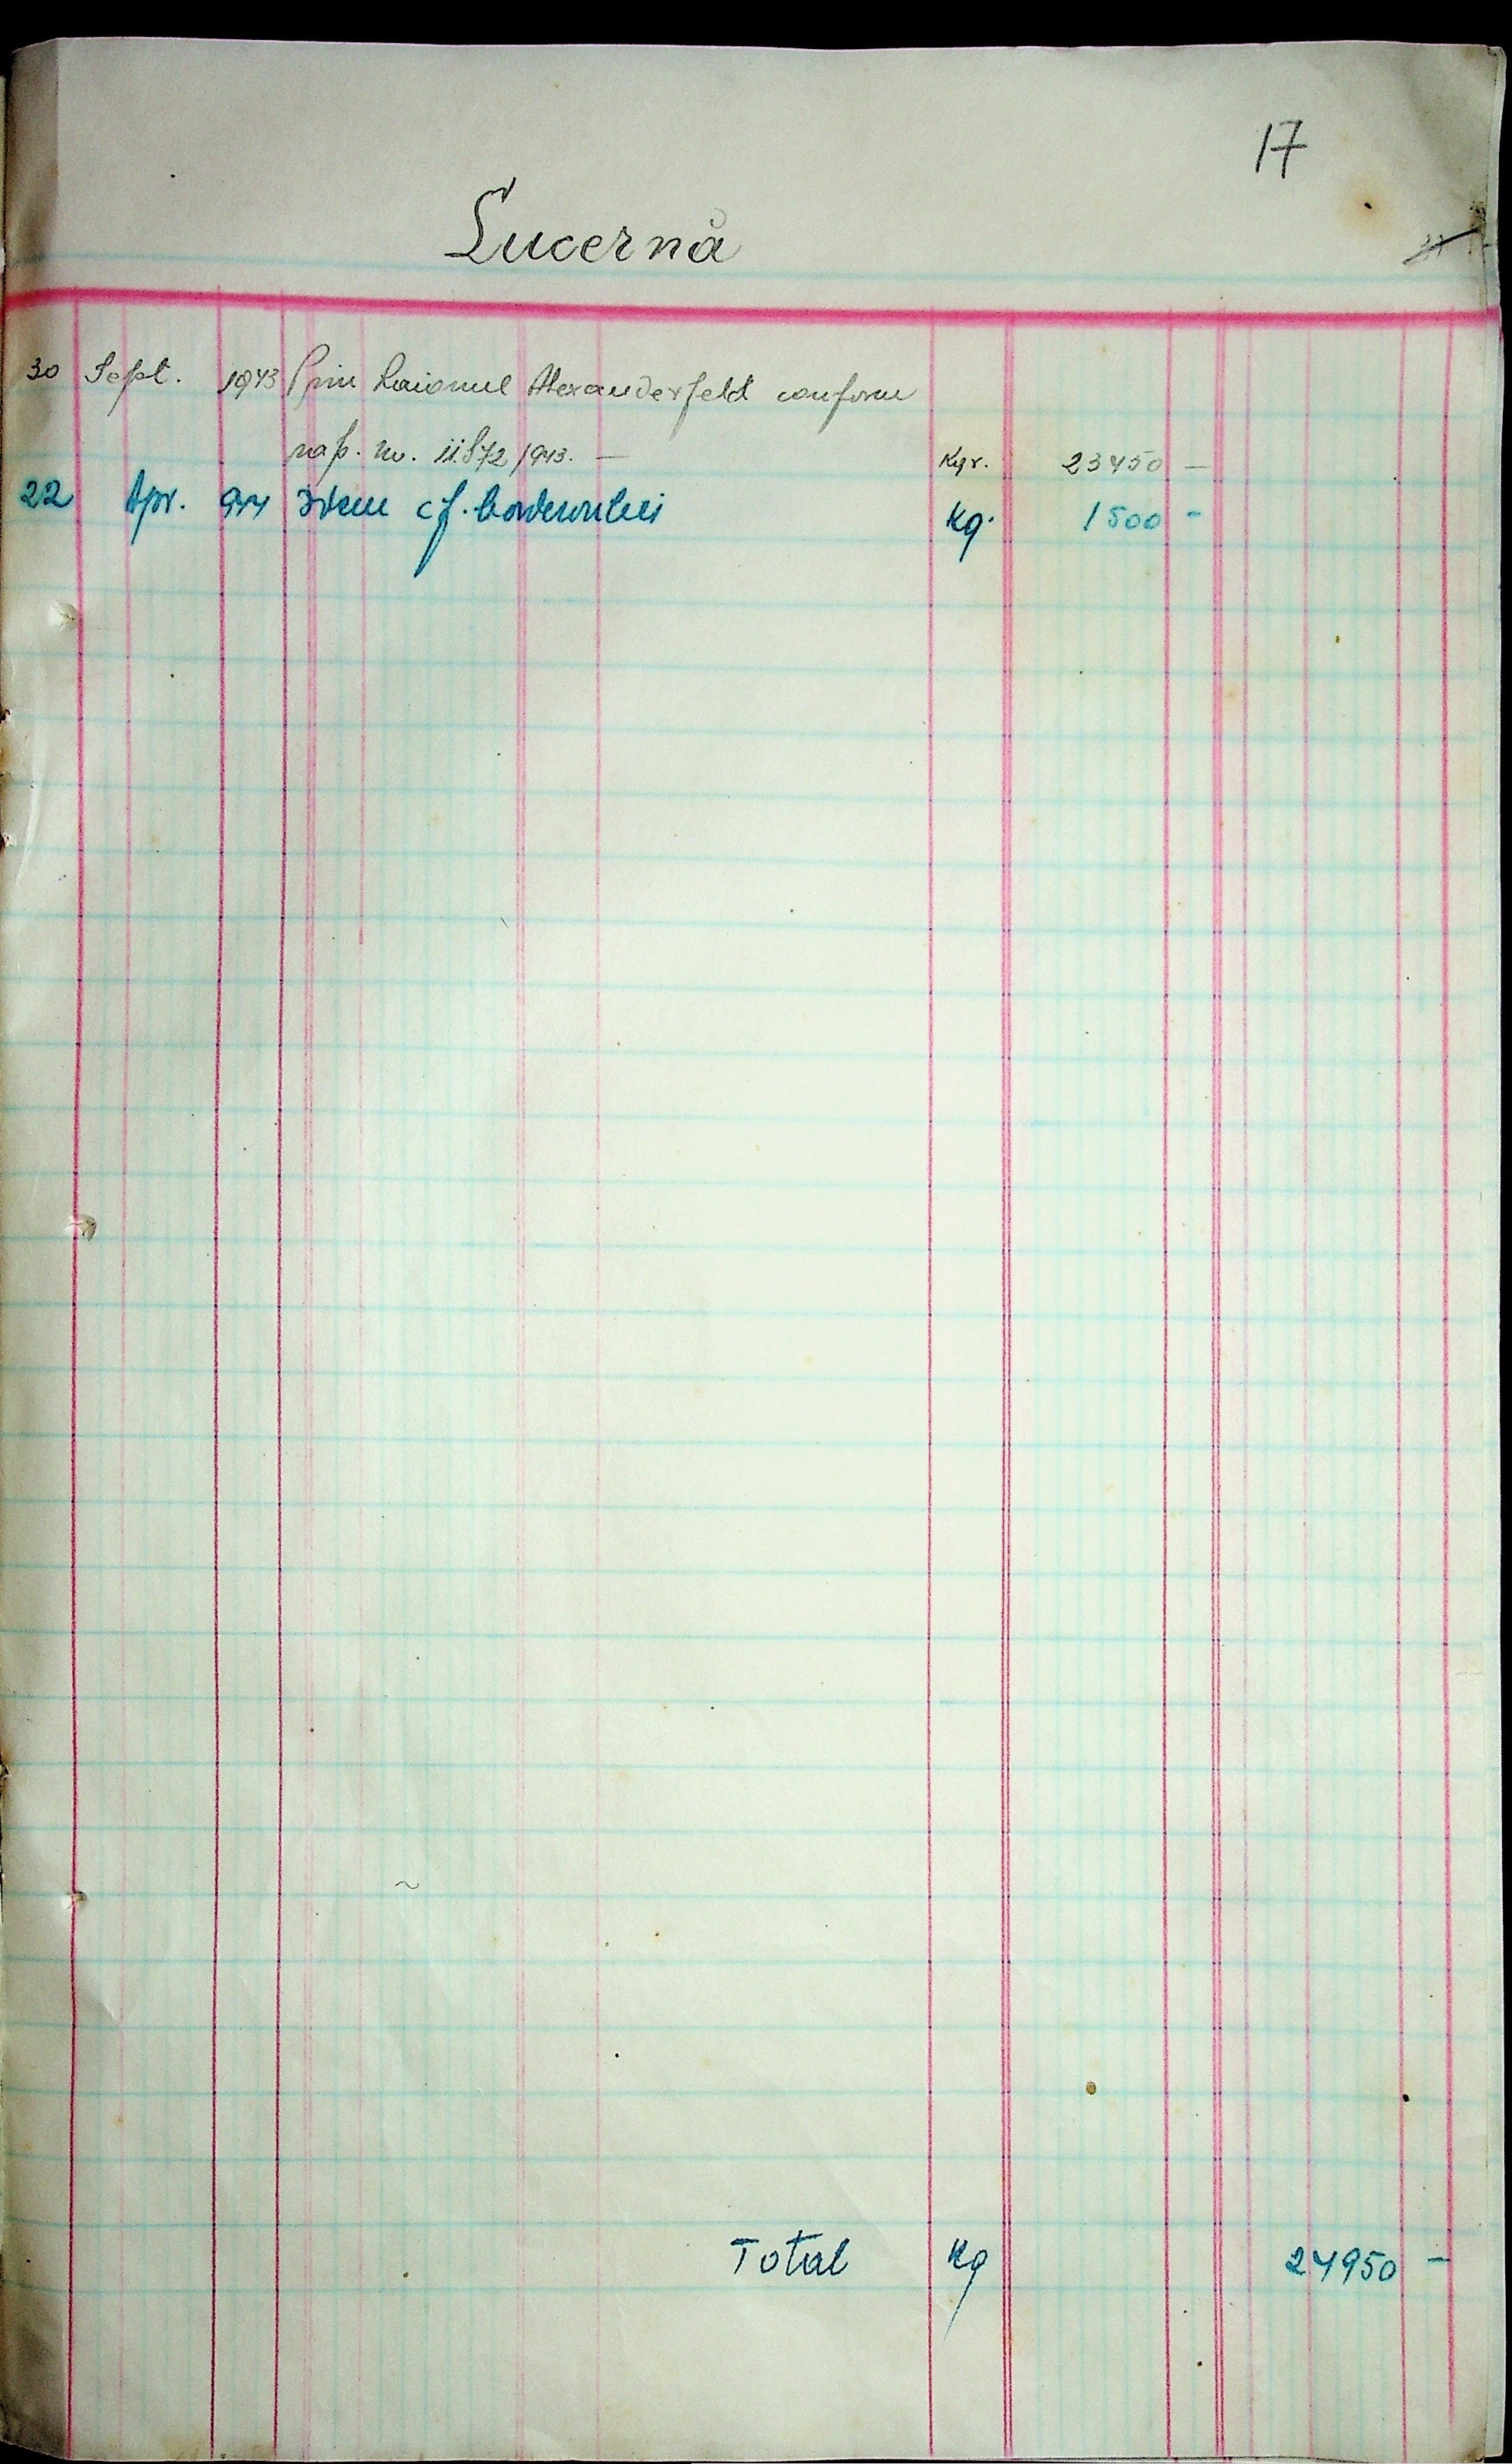 17
Lucernă
30 Sept. 1943 Prin Raionul Alexanderfeld conform
rap. No. 11.872/943. — Kgr. 23450 —
22 Apr. 944 Idem cf. borderoului Kg. 1500 -
Total Kg 24950 -